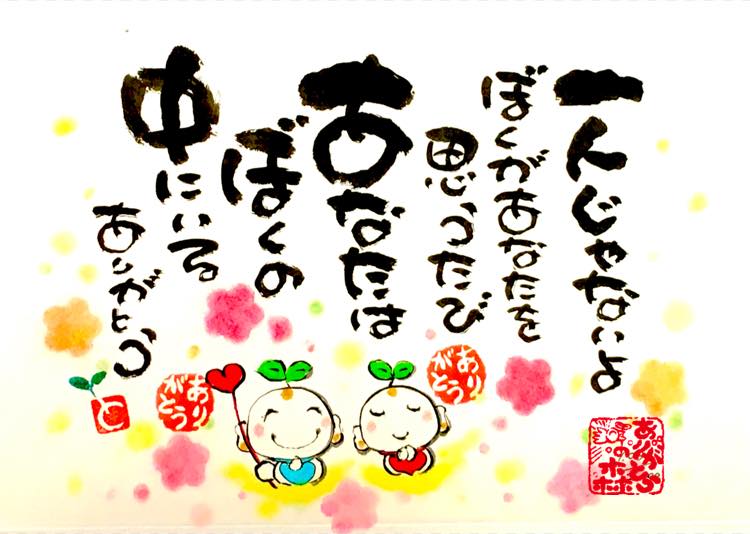 一人じゃないよ
ぼくがあなたを
思うたび
あなたは
ぼくの
中にいる
ありがとう
ありがとう
ありがとう
と
ありがとうの森